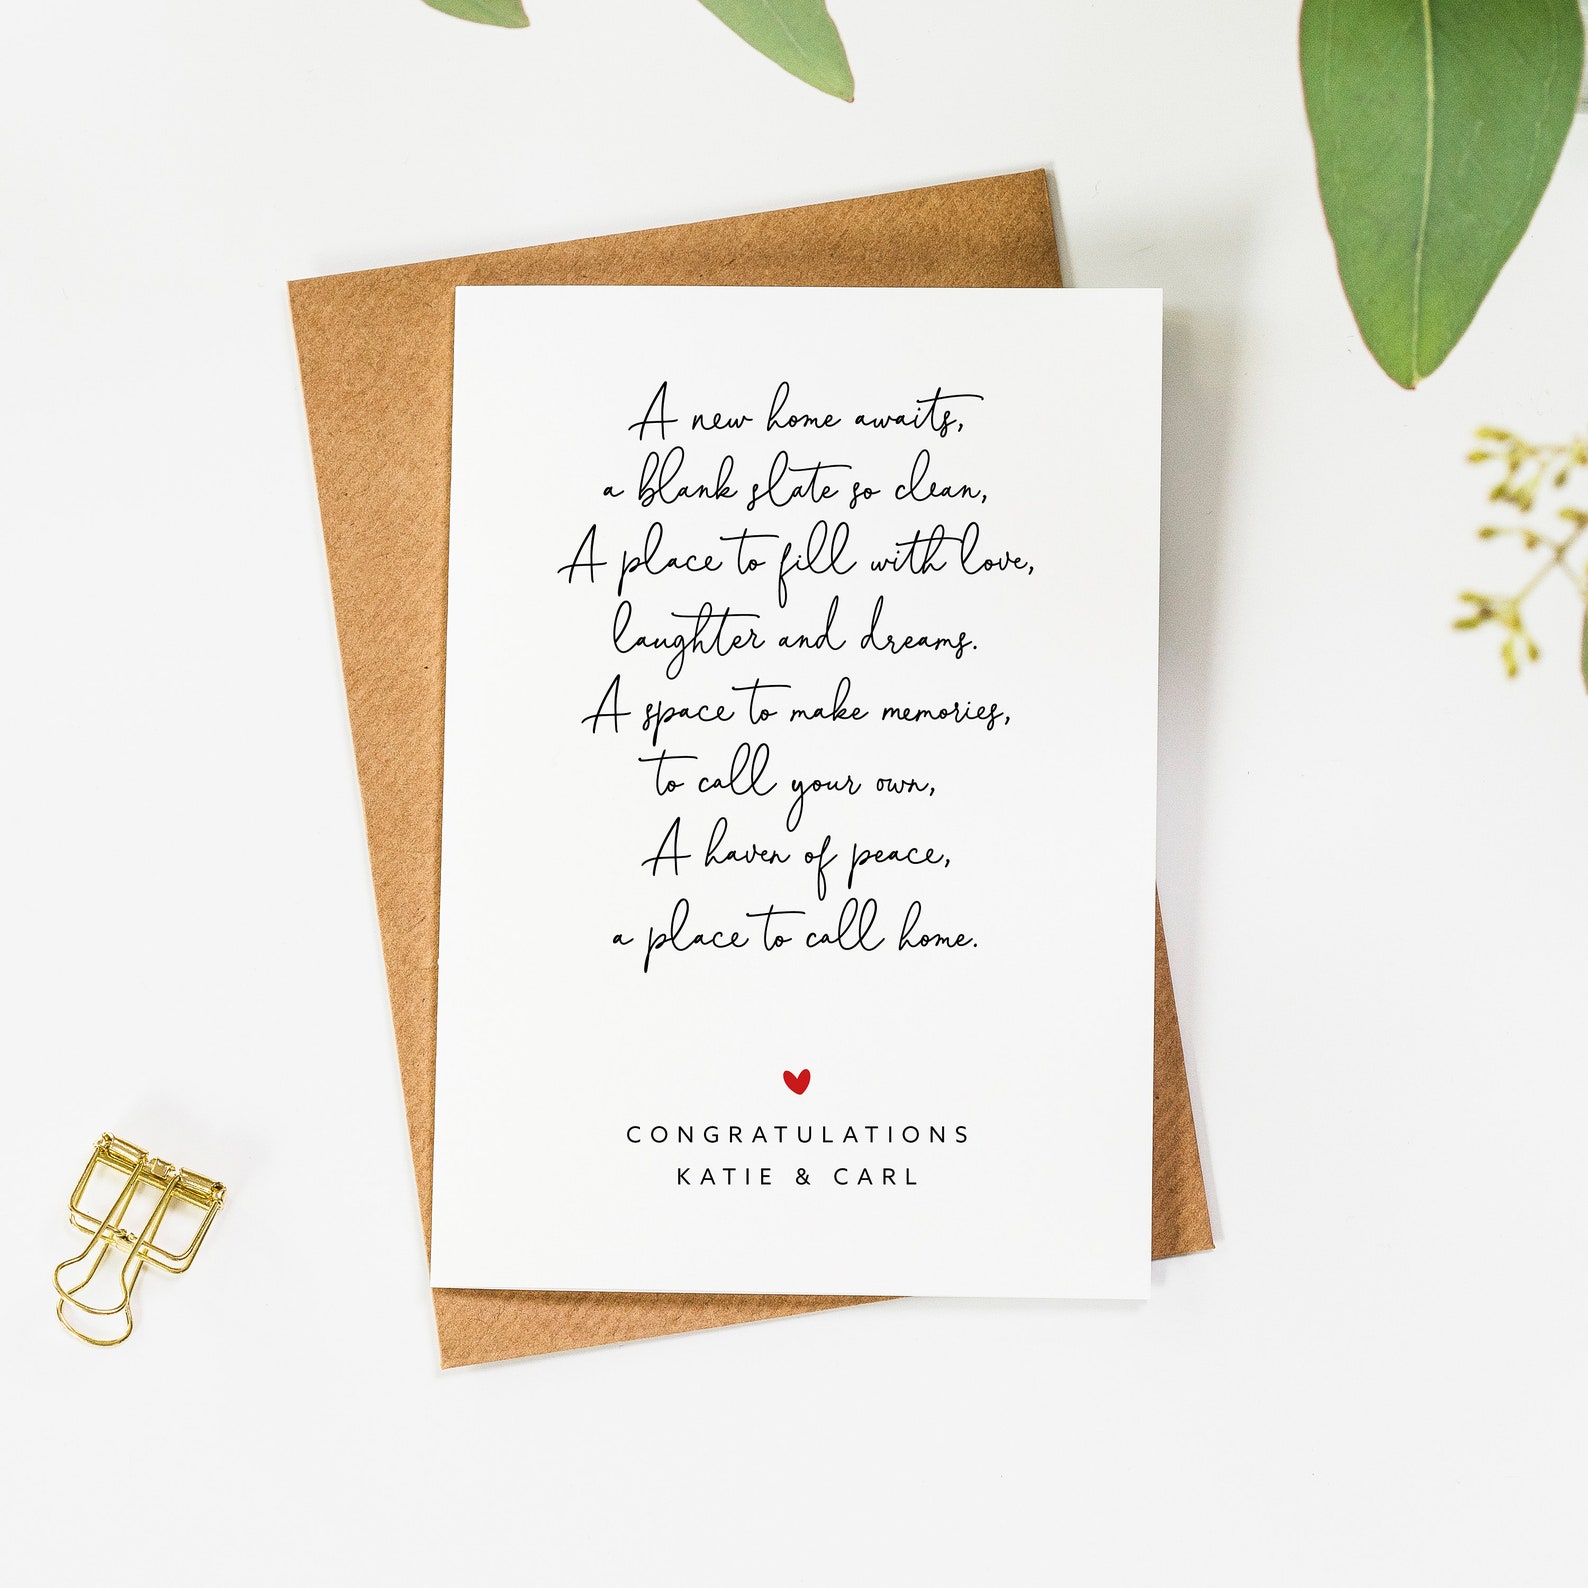 A new home awaits,
a blank slate so clean,
A place to fill with love,
laughter and dreams.
A space to make memories,
to call your own,
A haven of peace,
a place to call home.
CONGRATULATIONS
KATIE & CARL